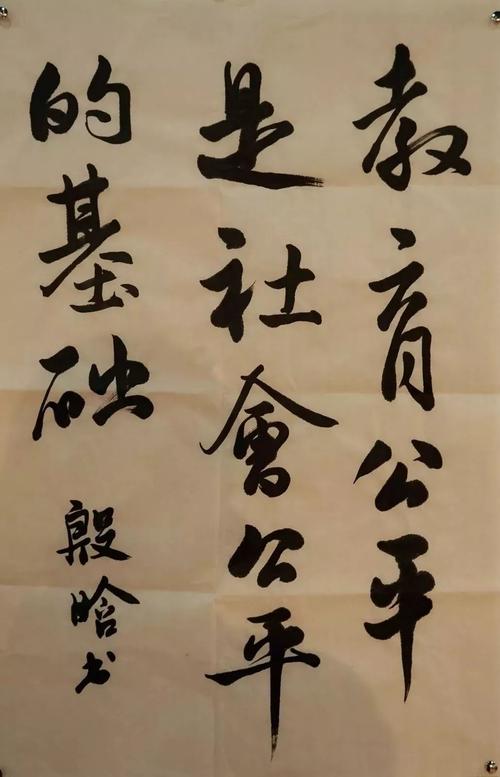 教育公平
是社會公平
的基础
殷晗书